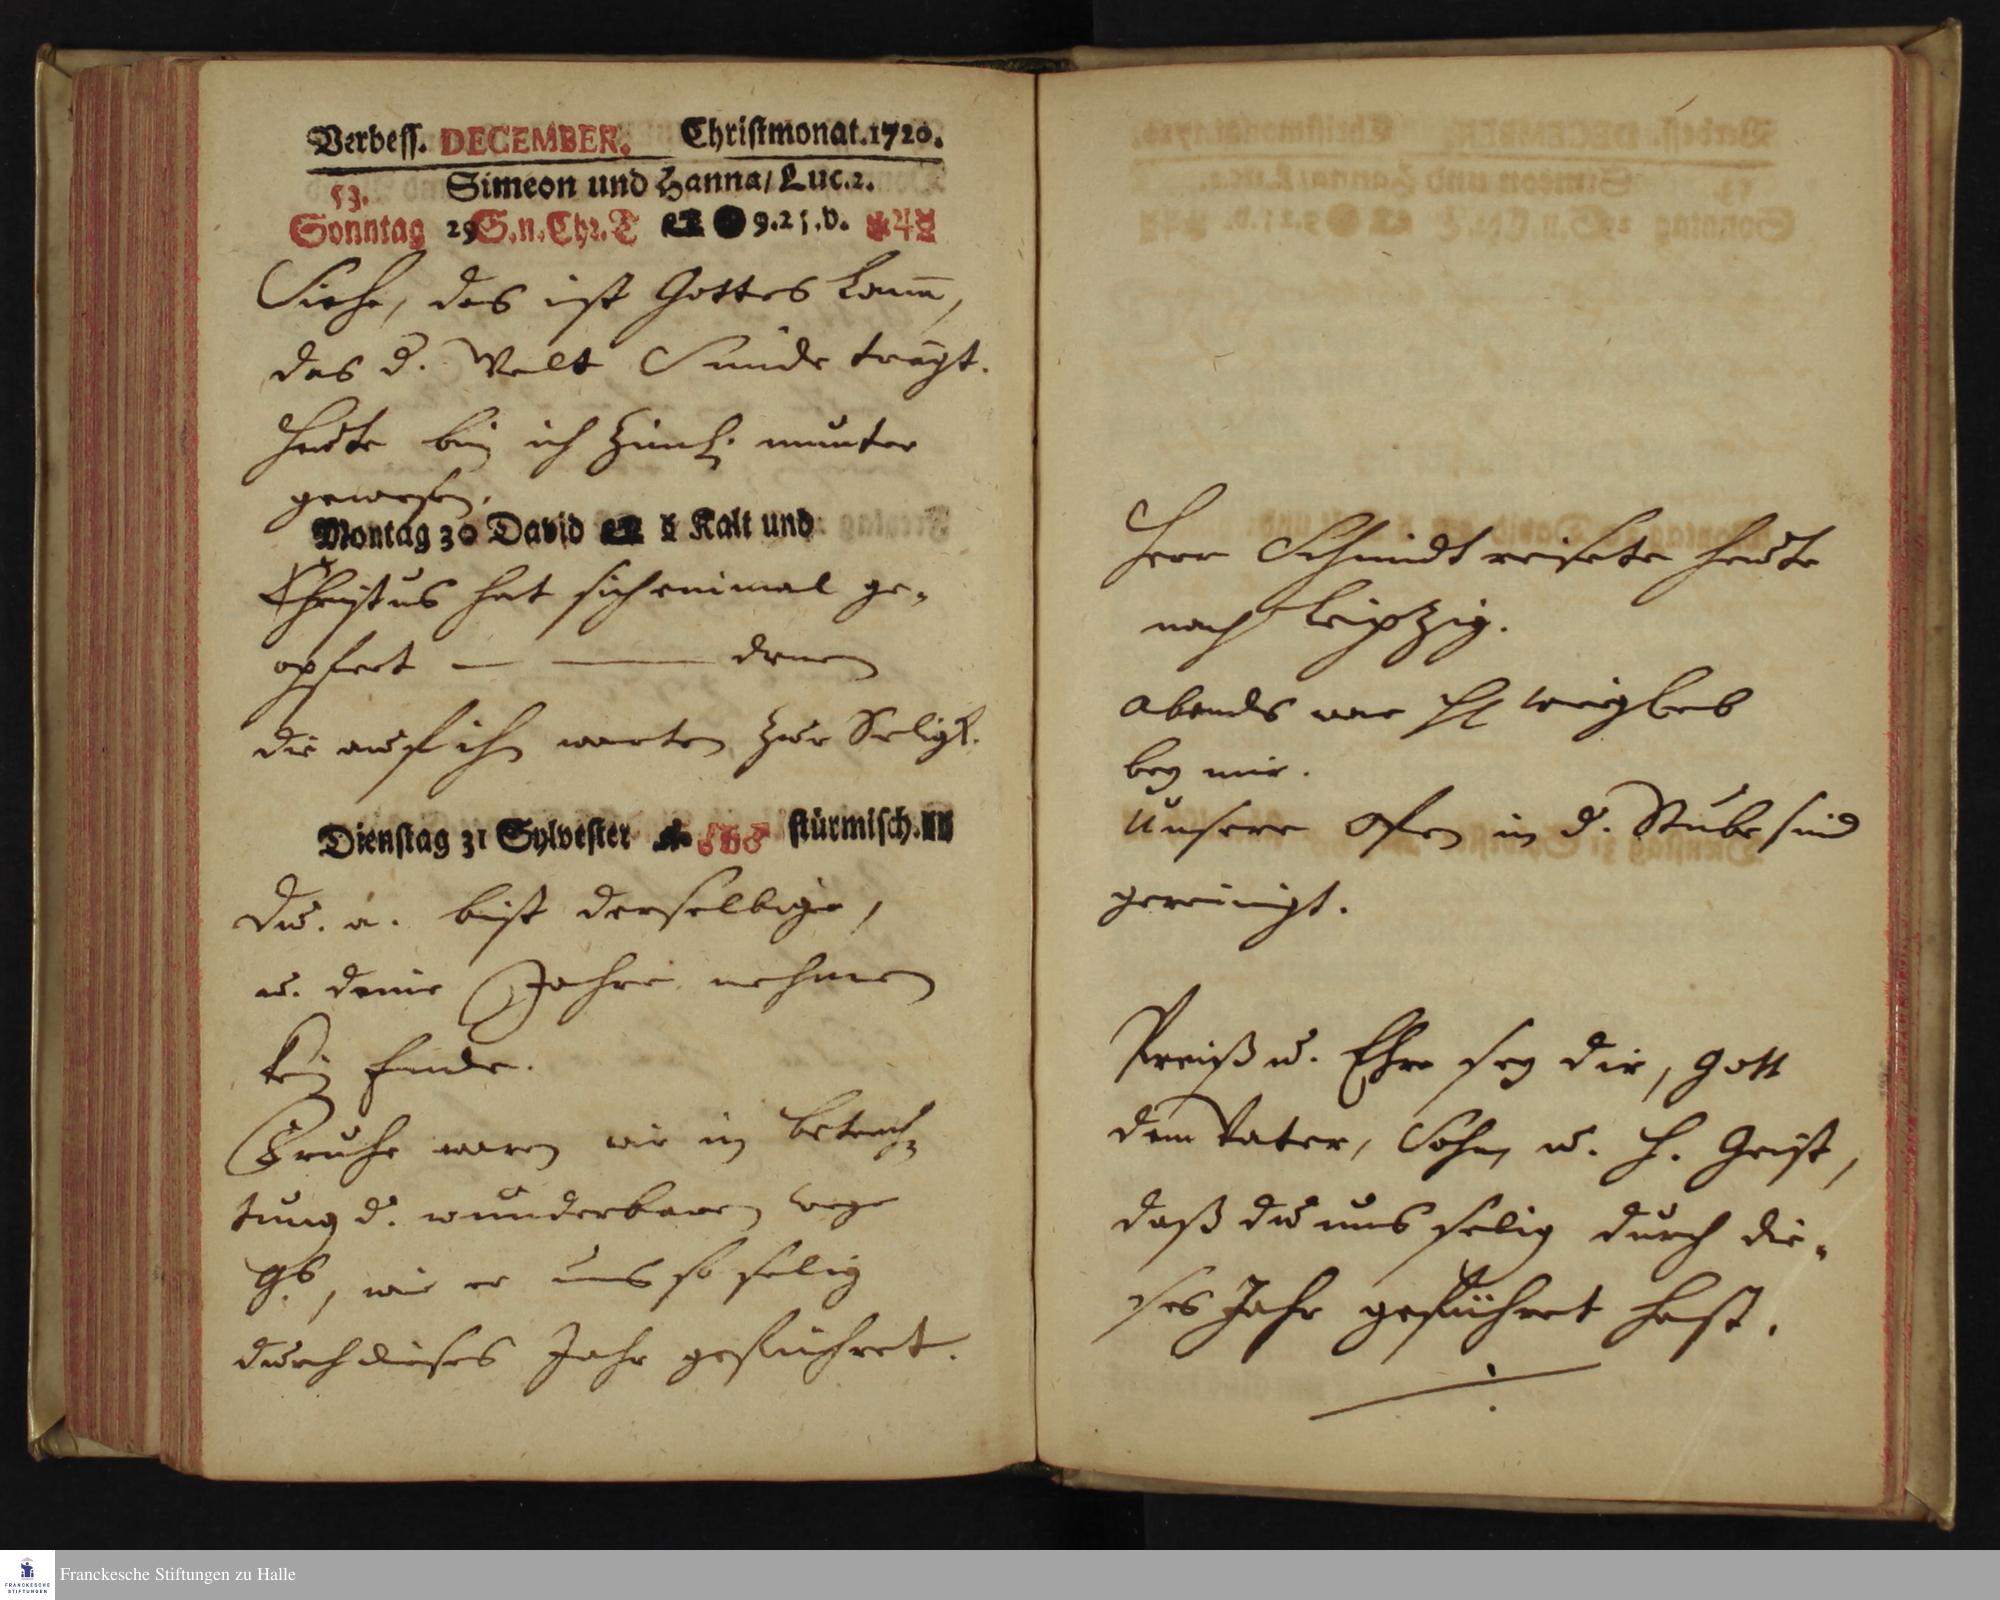 Verbess. DECEMBER. Christmonat. 1720.
Simeon und Hanna/ Luc. 2.
53.
Sonntag 29 S. n. Chr. T 9. 25. v. ♃
Siehe, das ist Gottes Lam̅,
das d. Welt Sünde trägt.
Heute bin ich zimł. munter
gewesen.
Montag 30 David Kalt und
Christus hat sich einmal ge-
opfert — — denen
die auf ihn warten zur Seligk.
Dienstag 31 Sylvester stürmisch.
Du. a. bist derselbige,
u. deine Jahre nehmen
kein Ende.
Fruhe waren wir in betrach-
tung d. wunderbaren wege
Gs, wie er uns so selig
durch dieses Jahr geführet.
Herr Schmidt reisete heute
nach Leipzig.
Abends war H Weigleb
bey mir.
Unsere Ofen in d. Stube sind
gereinigt.
Preiß u. Ehre sey dir, Gott
dem Vater, Sohn u. H. Geist,
daß du uns selig durch die-
ses Jahr geführet hast.
FRANCKESCHE
STIFTUNGEN
Franckesche Stiftungen zu Halle